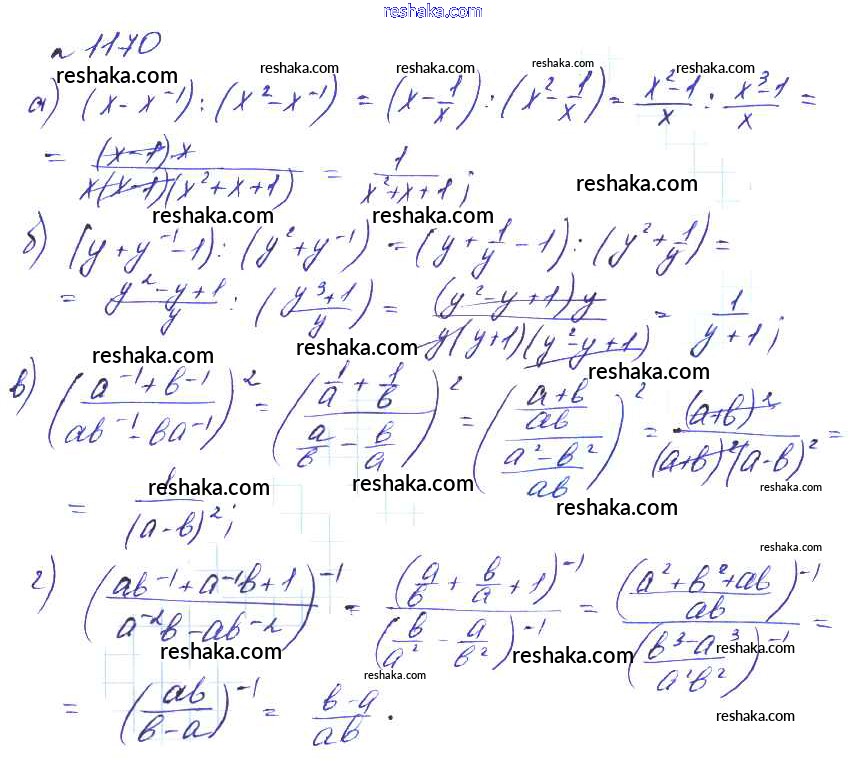 www.reshaka.com
n 1170
reshaka.com reshaka.com reshaka.com reshaka.com
а) (x - x⁻¹) : (x² - x⁻¹) = (x - 1/x) : (x² - 1/x) = (x² - 1)/x : (x³ - 1)/x =
= (x-1)·x / x(x-1)(x²+x+1) = 1/(x²+x+1);
reshaka.com
reshaka.com reshaka.com
б) (y + y⁻¹ - 1) : (y² + y⁻¹) = (y + 1/y - 1) : (y² + 1/y) =
= (y² - y + 1)/y : ((y³ + 1)/y) = (y² - y + 1)y / y(y+1)(y² - y + 1) = 1/(y + 1);
reshaka.com reshaka.com reshaka.com
в) ((a⁻¹ + b⁻¹)/(ab⁻¹ - ba⁻¹))² = ((1/a + 1/b)/(a/b - b/a))² = (((a+b)/ab)/((a² - b²)/ab))² = (a+b)²/(a+b)²(a-b)² =
reshaka.com reshaka.com reshaka.com reshaka.com
= 1/(a-b)²;
reshaka.com
г) ((ab⁻¹ + a⁻¹b + 1)/(a⁻²b - ab⁻²))⁻¹ = (a/b + b/a + 1)⁻¹/(b/a² - a/b²)⁻¹ = ((a² + b² + ab)/ab)⁻¹/((b³ - a³)/a²b²)⁻¹ =
reshaka.com
reshaka.com
reshaka.com reshaka.com reshaka.com
reshaka.com
= (ab/(b-a))⁻¹ = (b-a)/ab.
reshaka.com